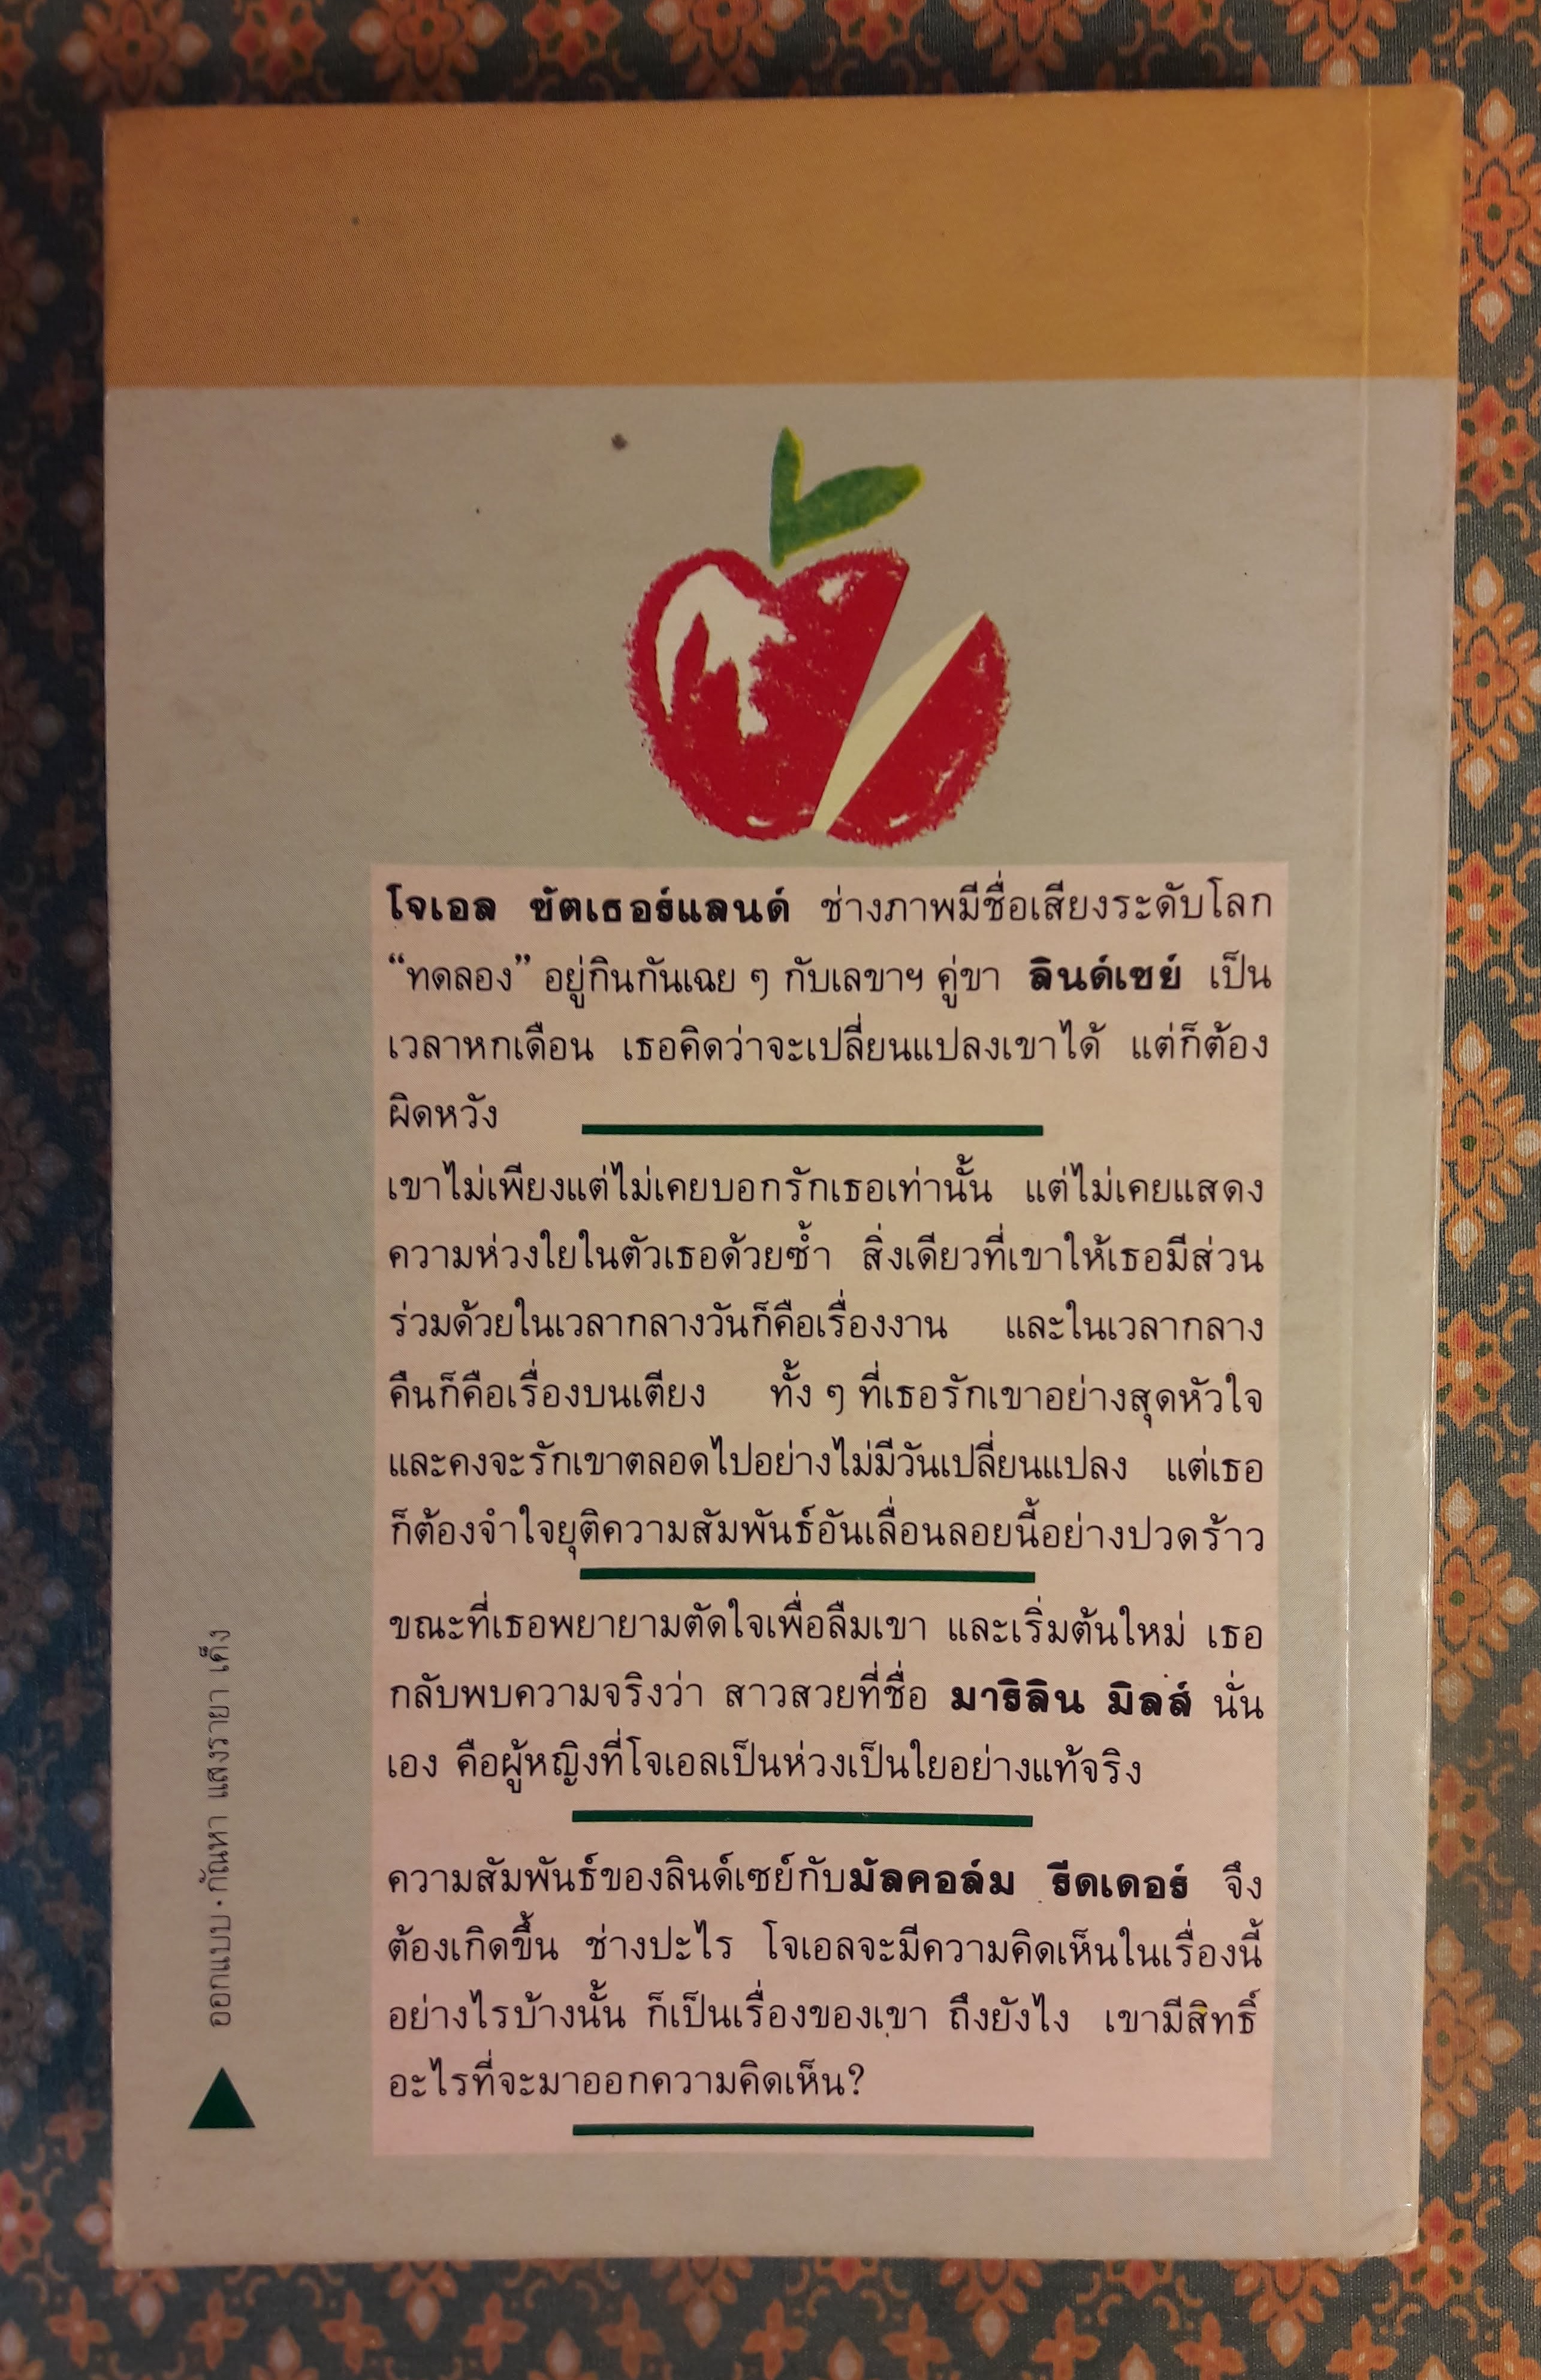 โจเอล ซัตเธอร์แลนด์ ช่างภาพมีชื่อเสียงระดับโลก
“ทดลอง” อยู่กินกันเฉย ๆ กับเลขาฯ คู่ขา ลินด์เซย์ เป็น
เวลาหกเดือน เธอคิดว่าจะเปลี่ยนแปลงเขาได้ แต่ก็ต้อง
ผิดหวัง
เขาไม่เพียงแต่ไม่เคยบอกรักเธอเท่านั้น แต่ไม่เคยแสดง
ความห่วงใยในตัวเธอด้วยซ้ำ สิ่งเดียวที่เขาให้เธอมีส่วน
ร่วมด้วยในเวลากลางวันก็คือเรื่องงาน และในเวลากลาง
คืนก็คือเรื่องบนเตียง ทั้ง ๆ ที่เธอรักเขาอย่างสุดหัวใจ
และคงจะรักเขาตลอดไปอย่างไม่มีวันเปลี่ยนแปลง แต่เธอ
ก็ต้องจำใจยุติความสัมพันธ์อันเลื่อนลอยนี้อย่างปวดร้าว
ขณะที่เธอพยายามตัดใจเพื่อลืมเขา และเริ่มต้นใหม่ เธอ
กลับพบความจริงว่า สาวสวยที่ชื่อ มาริลิน มิลส์ นั่น
เอง คือผู้หญิงที่โจเอลเป็นห่วงเป็นใยอย่างแท้จริง
ความสัมพันธ์ของลินด์เซย์กับมัลคอล์ม รีดเดอร์ จึง
ต้องเกิดขึ้น ช่างปะไร โจเอลจะมีความคิดเห็นในเรื่องนี้
อย่างไรบ้างนั้น ก็เป็นเรื่องของเขา ถึงยังไง เขามีสิทธิ์
อะไรที่จะมาออกความคิดเห็น?
ออกแบบ·กัณหา แสงรายา เค็ง